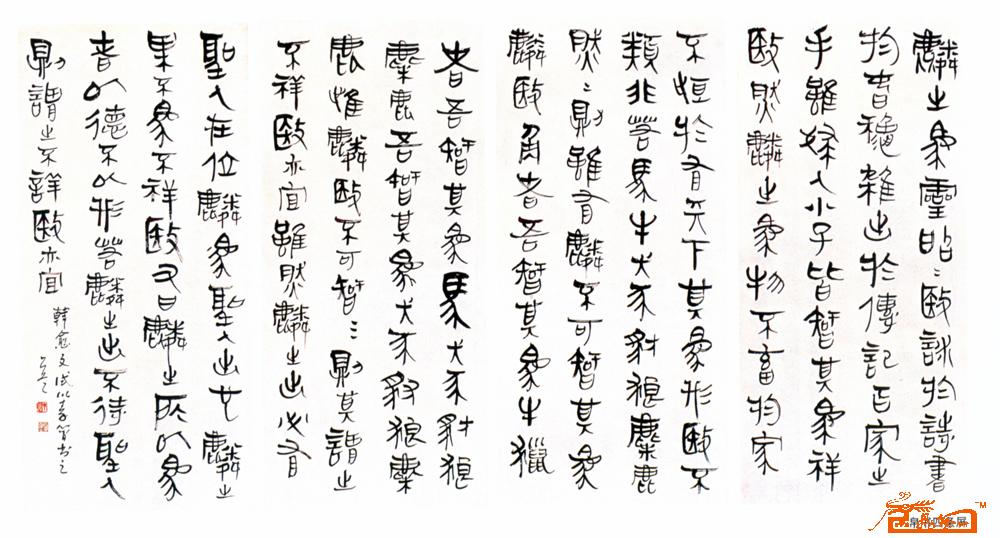 麟之為靈昭〻殹詠於詩書
於春穐雜出於傳記百家之
乎雖婦人小子皆智其為祥
殹然麟之為物不畜於家
不恒於有天下其為形殹不
類非若馬牛犬豕豺狼麋鹿
然〻則雖有麟不可智其為
麟殹角者吾智其為牛獵
者吾智其為馬犬豕豺狼
麋鹿吾智其為犬豕豺狼麋
鹿惟麟殹不可智〻則其謂之
不祥殹亦宜雖然麟之出必有
聖人在位麟為聖人出也麟之
果不為不祥殹又曰麟之所以為
者以德不以形若麟之出不待聖人
則謂之不詳殹亦宜
韓愈文 書之
帛书四条屏
TM